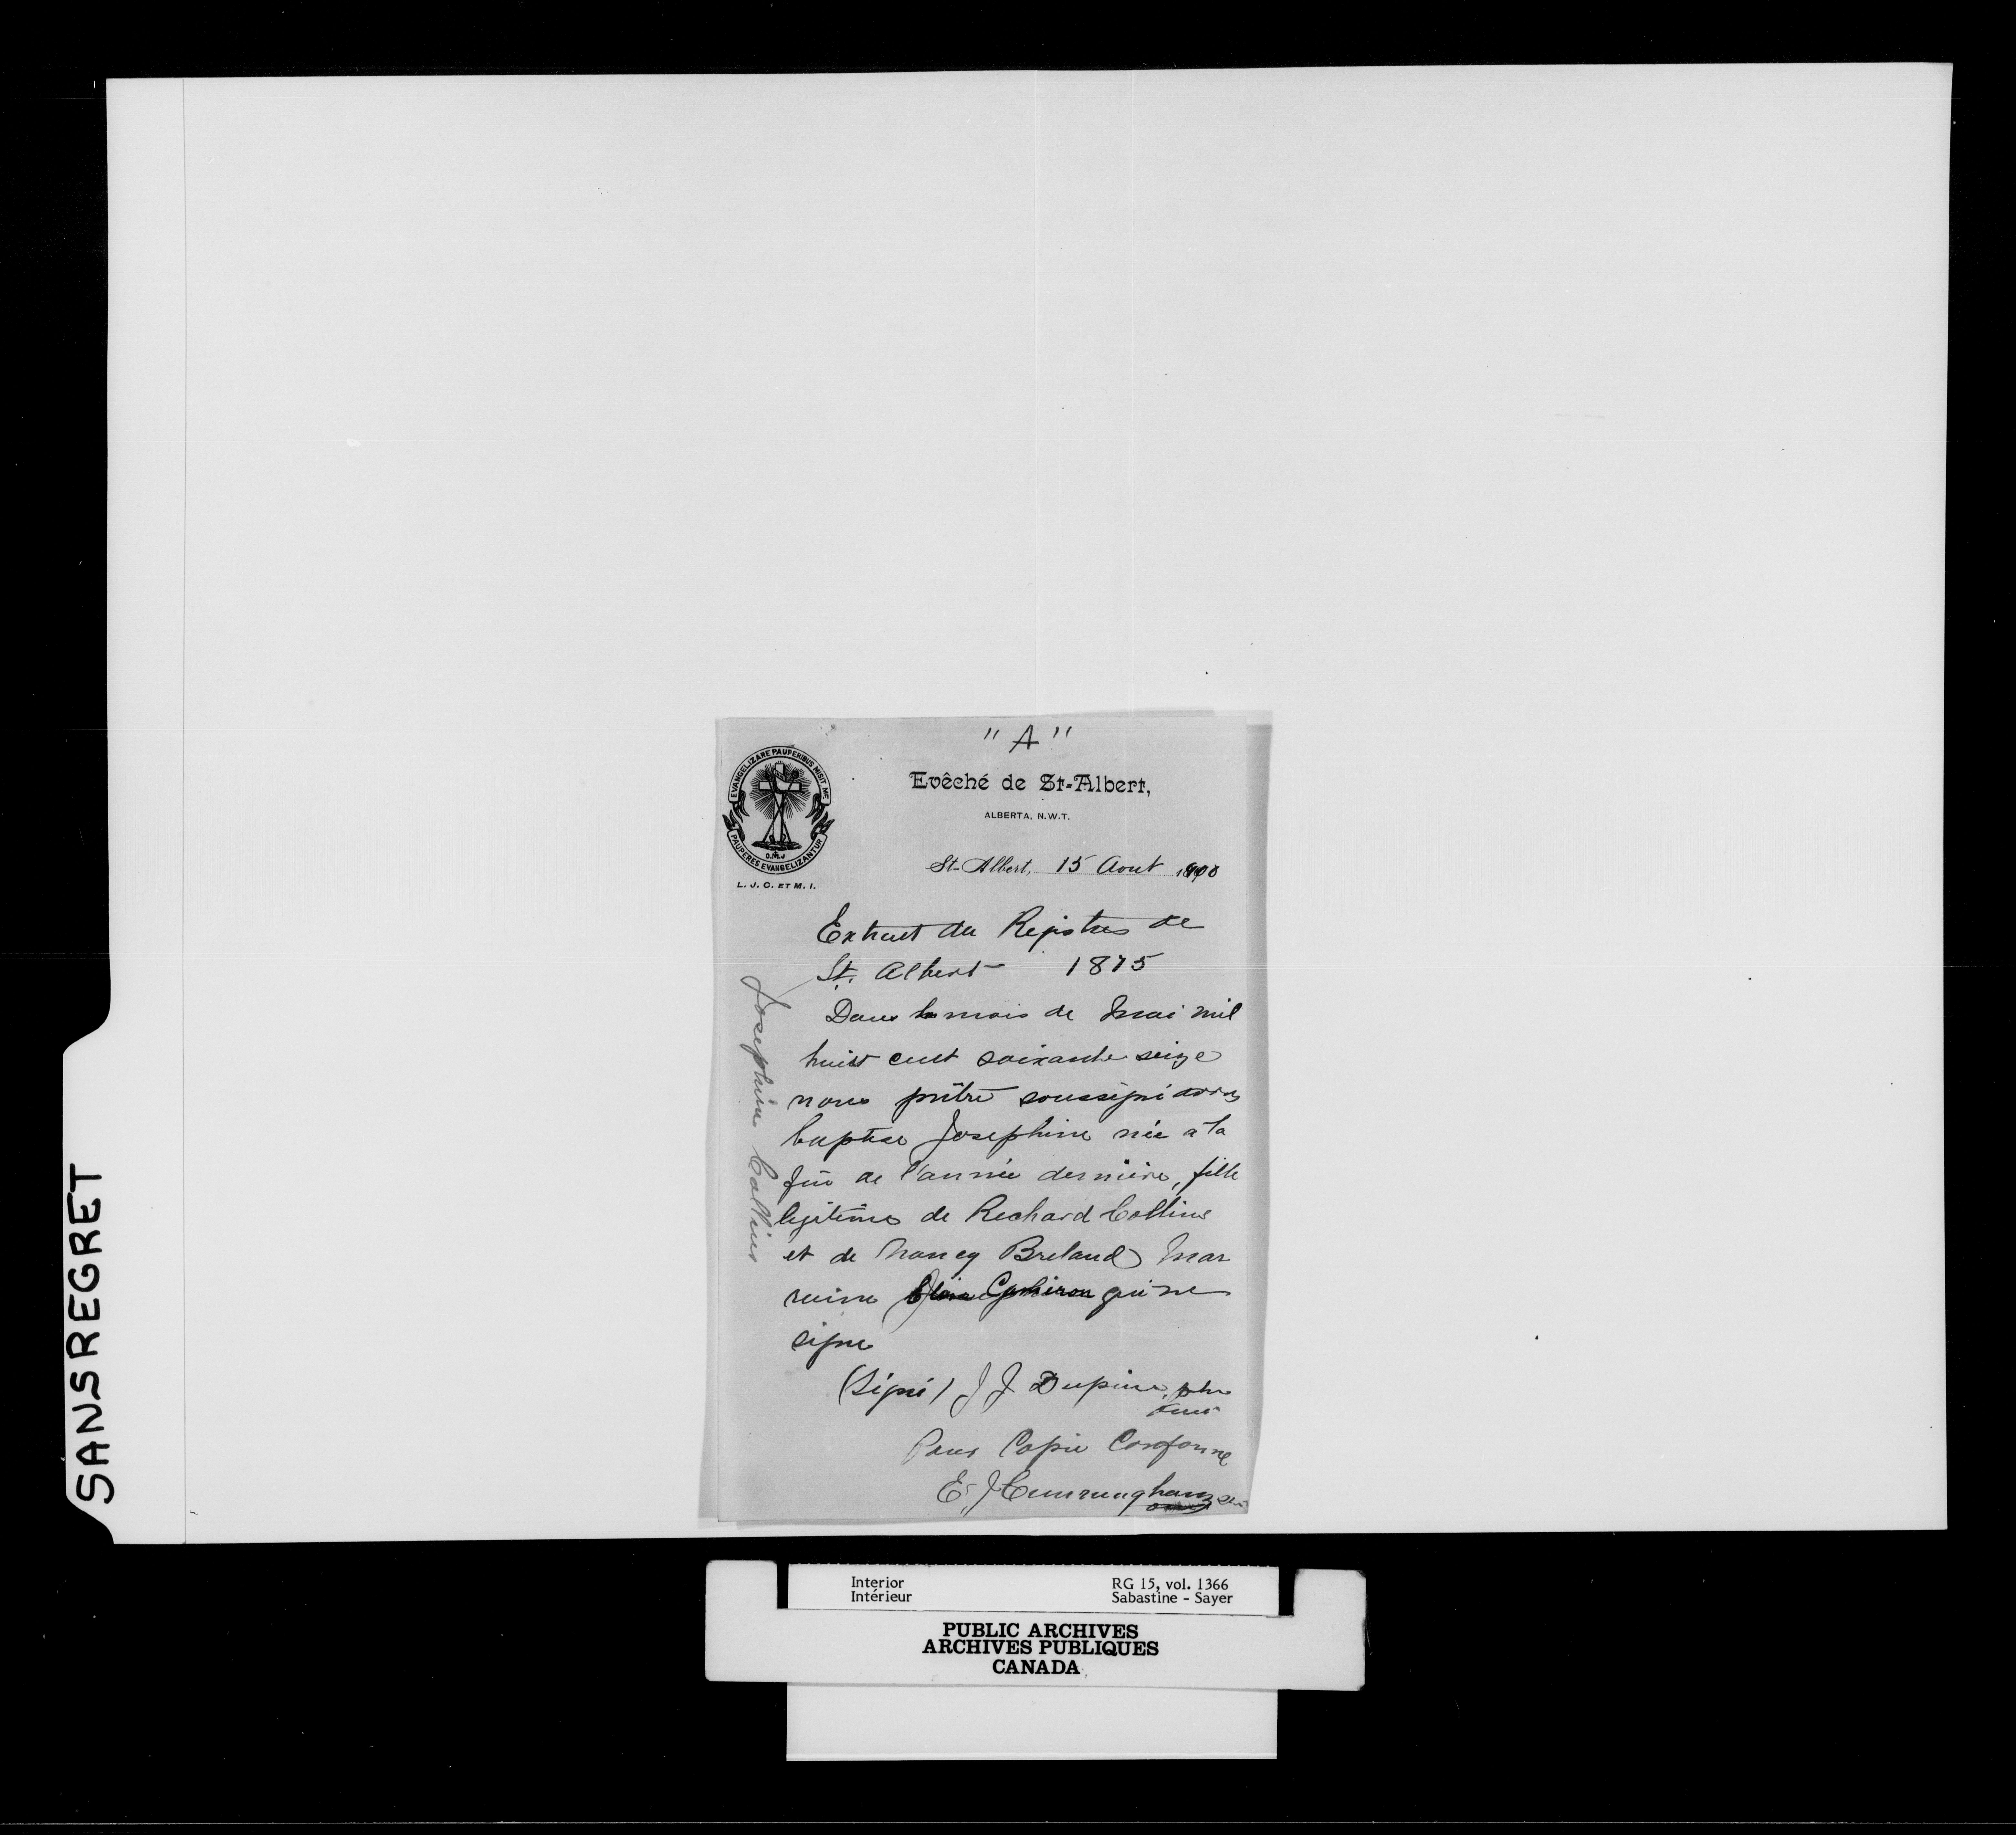 SANSREGRET
"A"
EVANGELIZARE PAUPERIBUS MISIT ME
O.M.J
PAUPERES EVANGELIZANTUR
L. J. C. ET M. I.
Evêché de St-Albert,
ALBERTA, N.W.T.
St-Albert, 15 Aout 1900
Extrait du Registres de
St. Albert 1875
Josephine Collins
Dans le mois de Mai mil
huit cent soixante seize
nous prêtre soussigné avons
baptise Josephine née a la
fin de l'année derniere, fille
legitime de Richard Collins
et de Nancy Breland Mar
raine qui ne
signe
(Signé) J J Dupin ptre
Pour Copie Conforme
E. J Cunningham
Interior
Intérieur
RG 15, vol. 1366
Sabastine - Sayer
PUBLIC ARCHIVES
ARCHIVES PUBLIQUES
CANADA